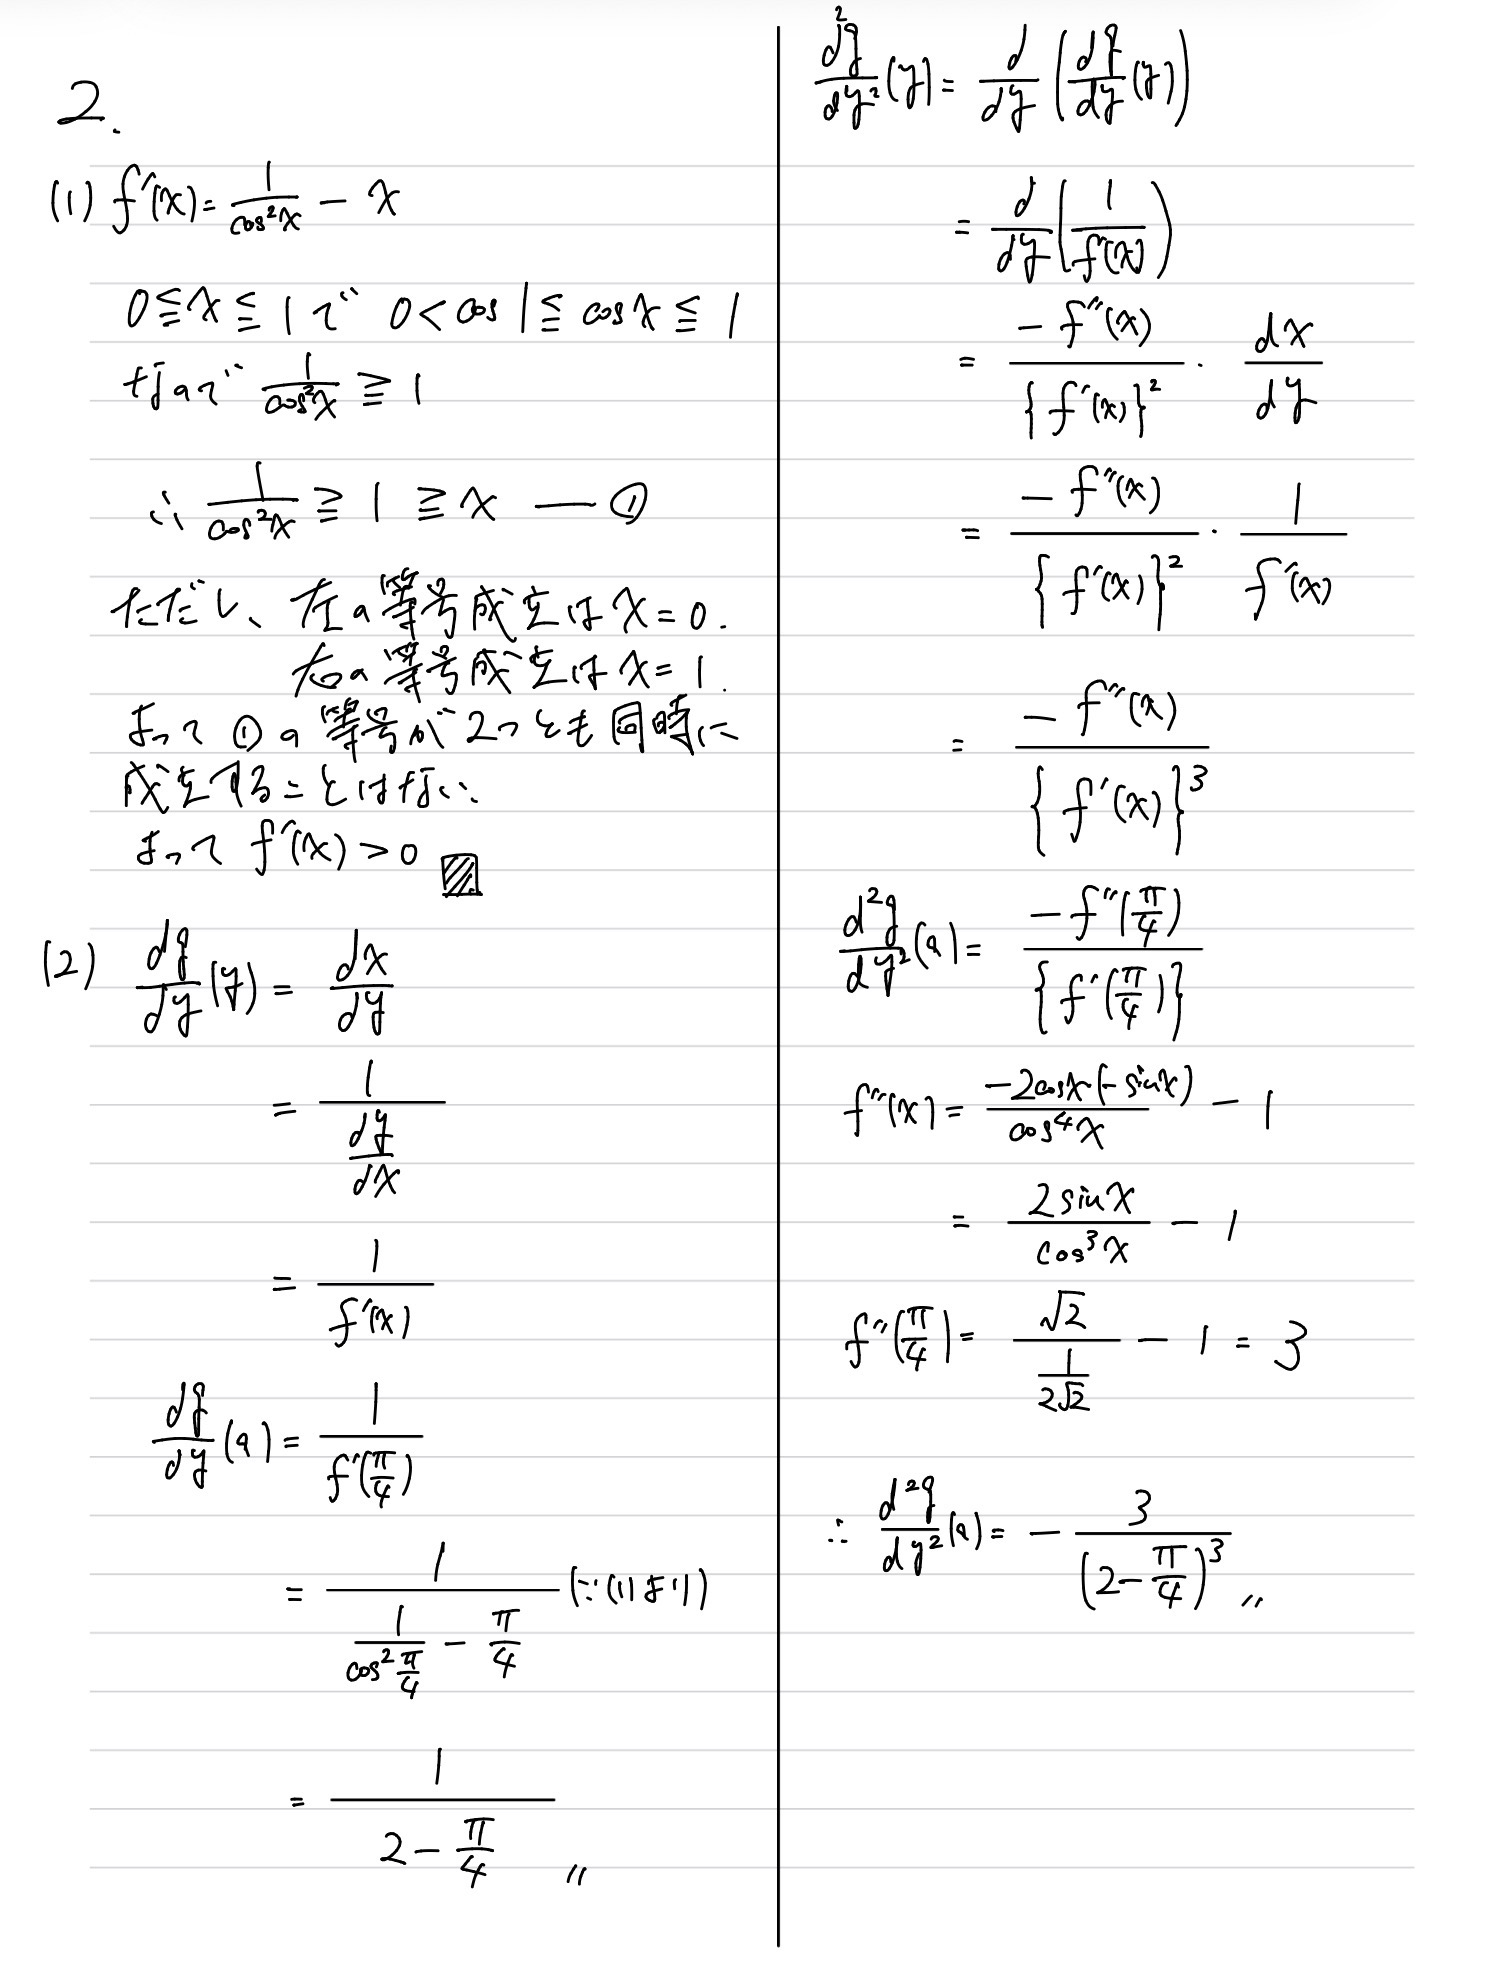 2.
(1) f'(x) = 1/cos²x - x
0≦x≦1で 0<cos1≦cosx≦1
なので 1/cos²x ≧ 1
∴ 1/cos²x ≧ 1 ≧ x — ①
ただし、左の等号成立はx=0.
右の等号成立はx=1.
よって①の等号が2つとも同時に
成立することはない.
よって f'(x)>0 ▨
(2) dg/dy(y) = dx/dy
= 1/(dy/dx)
= 1/f'(x)
dg/dy(a) = 1/f'(π/4)
= 1/(1/cos²(π/4) - π/4) (∵(1)より)
= 1/(2 - π/4) 〃
d²g/dy²(y) = d/dy (dg/dy(y))
= d/dy (1/f'(x))
= -f''(x)/{f'(x)}² · dx/dy
= -f''(x)/{f'(x)}² · 1/f'(x)
= -f''(x)/{f'(x)}³
d²g/dy²(a) = -f''(π/4)/{f'(π/4)}
f''(x) = -2cosx(-sinx)/cos⁴x - 1
= 2sinx/cos³x - 1
f''(π/4) = √2/(1/2√2) - 1 = 3
∴ d²g/dy²(a) = - 3/(2 - π/4)³ 〃